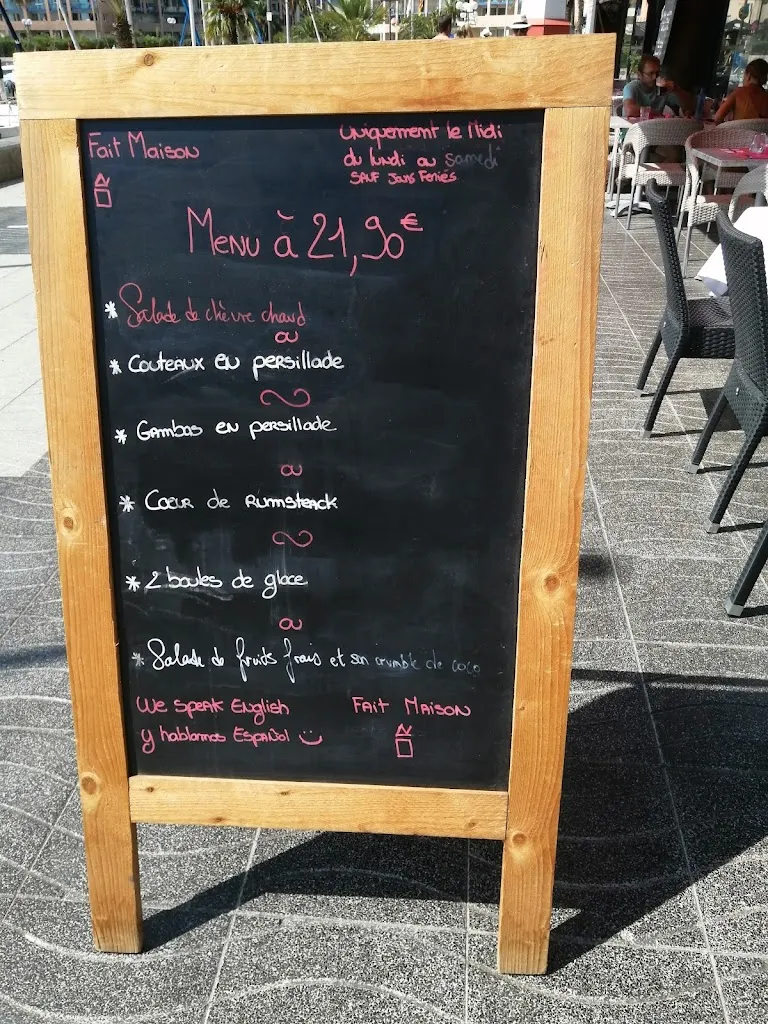 Fait Maison
Uniquement le Midi
du lundi au samedi
SAUF Jours Feriés
Menu à 21,90€
* Salade de chèvre chaud
ou
* Couteaux en persillade
* Gambas en persillade
ou
* Coeur de Rumsteack
* 2 boules de glace
ou
* Salade de fruits frais et son crumble de coco
We speak English
y hablamos Español
Fait Maison